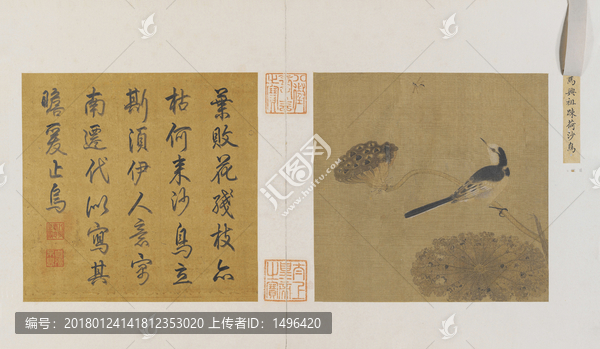 馬興祖疎荷沙鳥
葉敗花殘枝亦
枯何来沙鳥立
斯須伊人意寓
南遷代似寫其
瞻爰止烏
编号：20180124141812353020 上传者ID：1496420